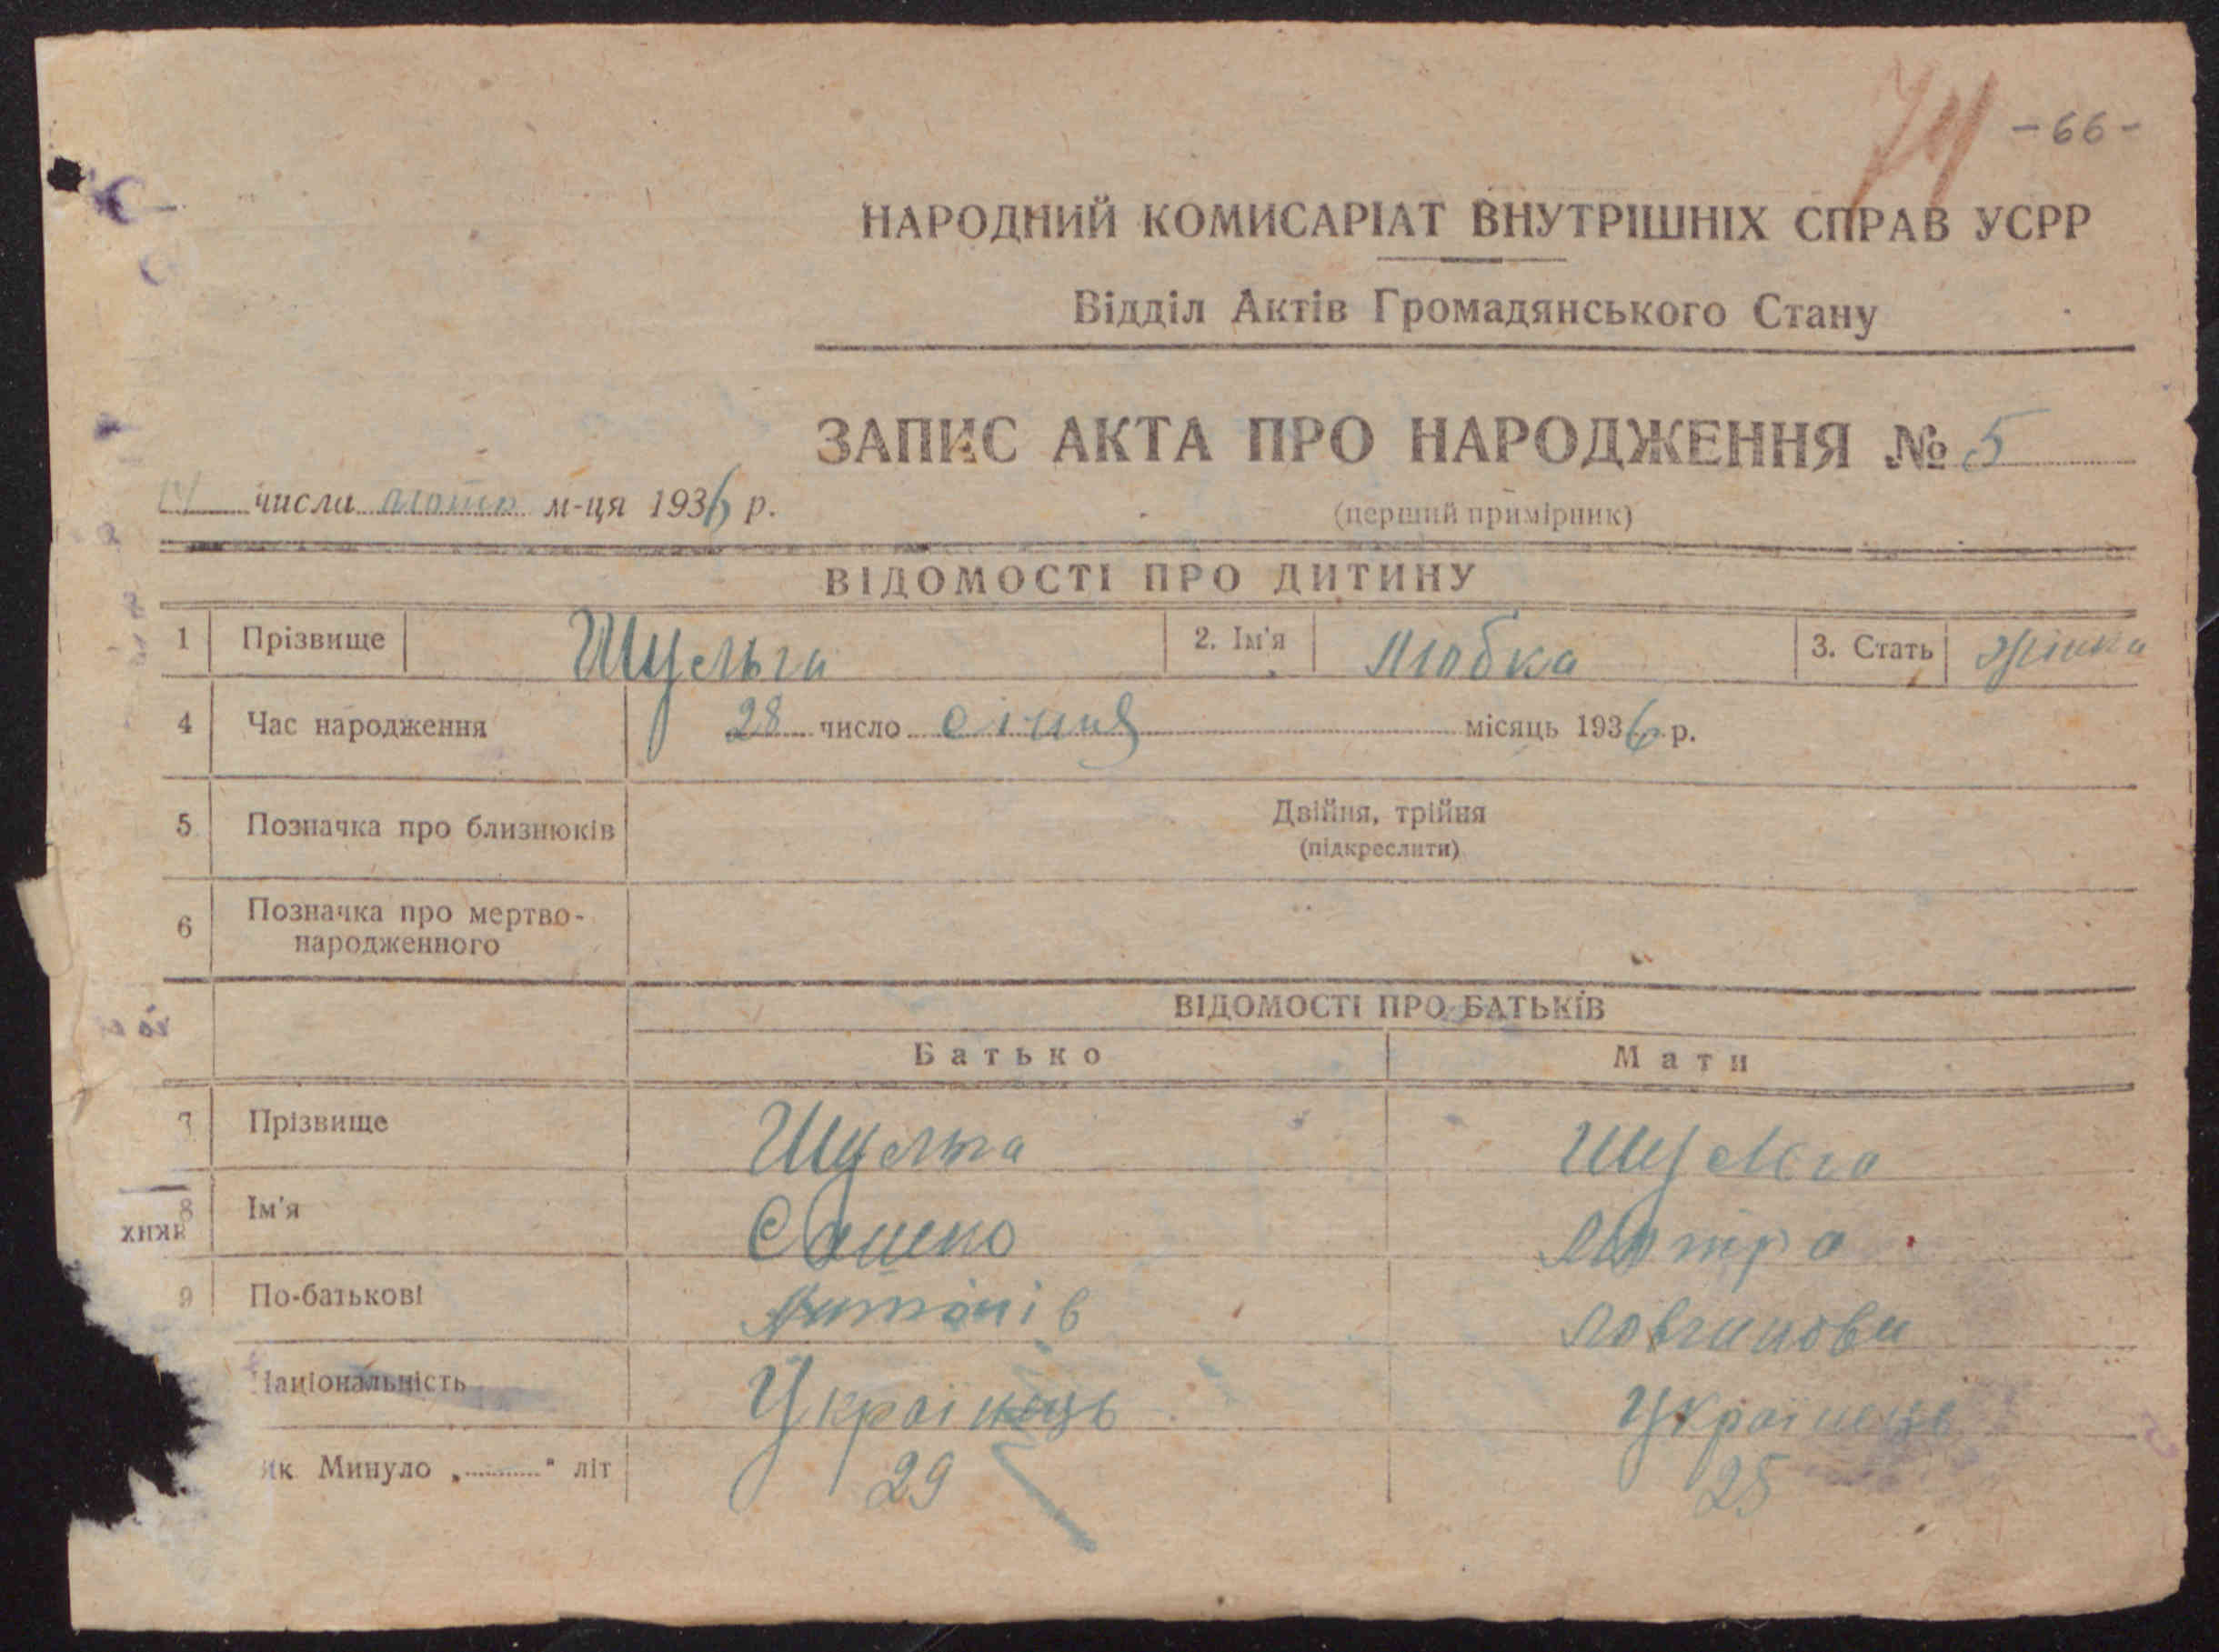 74 -66-
НАРОДНИЙ КОМИСАРІАТ ВНУТРІШНІХ СПРАВ УСРР
Відділ Актів Громадянського Стану
ЗАПИС АКТА ПРО НАРОДЖЕННЯ № 5
числа м-ця 1936 р.
(перший примірник)
ВІДОМОСТІ ПРО ДИТИНУ
1 Прізвище Шульга 2. Ім'я Любка 3. Стать жінка
4 Час народження 28 число січня місяць 1936 р.
5 Позначка про близнюків Двійня, трійня
(підкреслити)
6 Позначка про мертво-
народженного
ВІДОМОСТІ ПРО БАТЬКІВ
Батько Мати
7 Прізвище Шульга Шульга
8 Ім'я Мотра
9 По-батькові Антонів
Національність Українець Українець
як Минуло „ “ літ 29 25